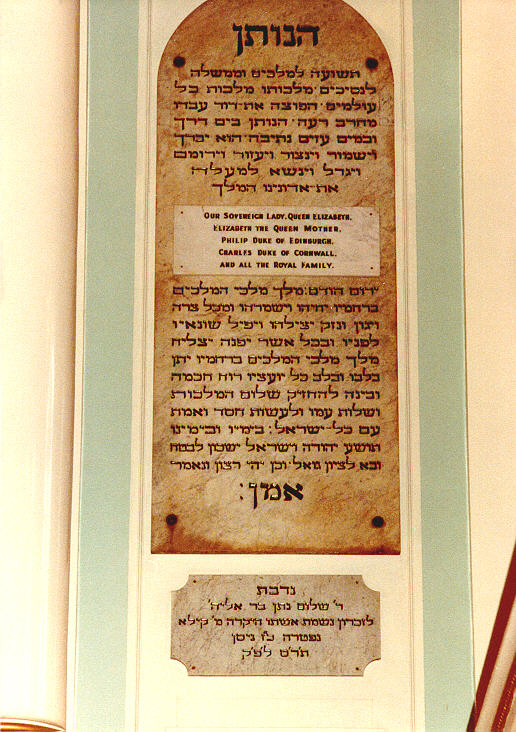 הנותן
תשועה למלכים וממשלה
לנסיכים מלכותו מלכות כל
עולמים הפוצה את דוד עבדו
מחרב רעה הנותן בים דרך
ובמים עזים נתיבה הוא יברך
וישמור וינצור ויעזור וירומם
ויגדל וינשא למעלה
את אדונינו המלך
OUR SOVEREIGN LADY, QUEEN ELIZABETH,
ELIZABETH THE QUEEN MOTHER,
PHILIP DUKE OF EDINBURGH,
CHARLES DUKE OF CORNWALL,
AND ALL THE ROYAL FAMILY.
ירום הודם: מלך מלכי המלכים
ברחמיו יחיהו וישמרהו ומכל צרה
ויגון ונזק יצילהו ויפיל שונאיו
לפניו ובכל אשר יפנה יצליח
מלך מלכי המלכים ברחמיו יתן
בלבו ובלב כל יועציו רוח חכמה
ובינה להחזיק שלום המלכות
ושלות עמו ולעשות חסד ואמת
עם כל ישראל: בימיו ובימינו
תושע יהודה וישראל ישכון לבטח
ובא לציון גואל וכן יהי רצון ונאמר
אמן:
נדבת
ר' שלום נתן בר אליה
לזכרון נשמת אשתו היקרה מ' קילא
נפטרה כ"ז ניסן
תר"ס לפ"ק